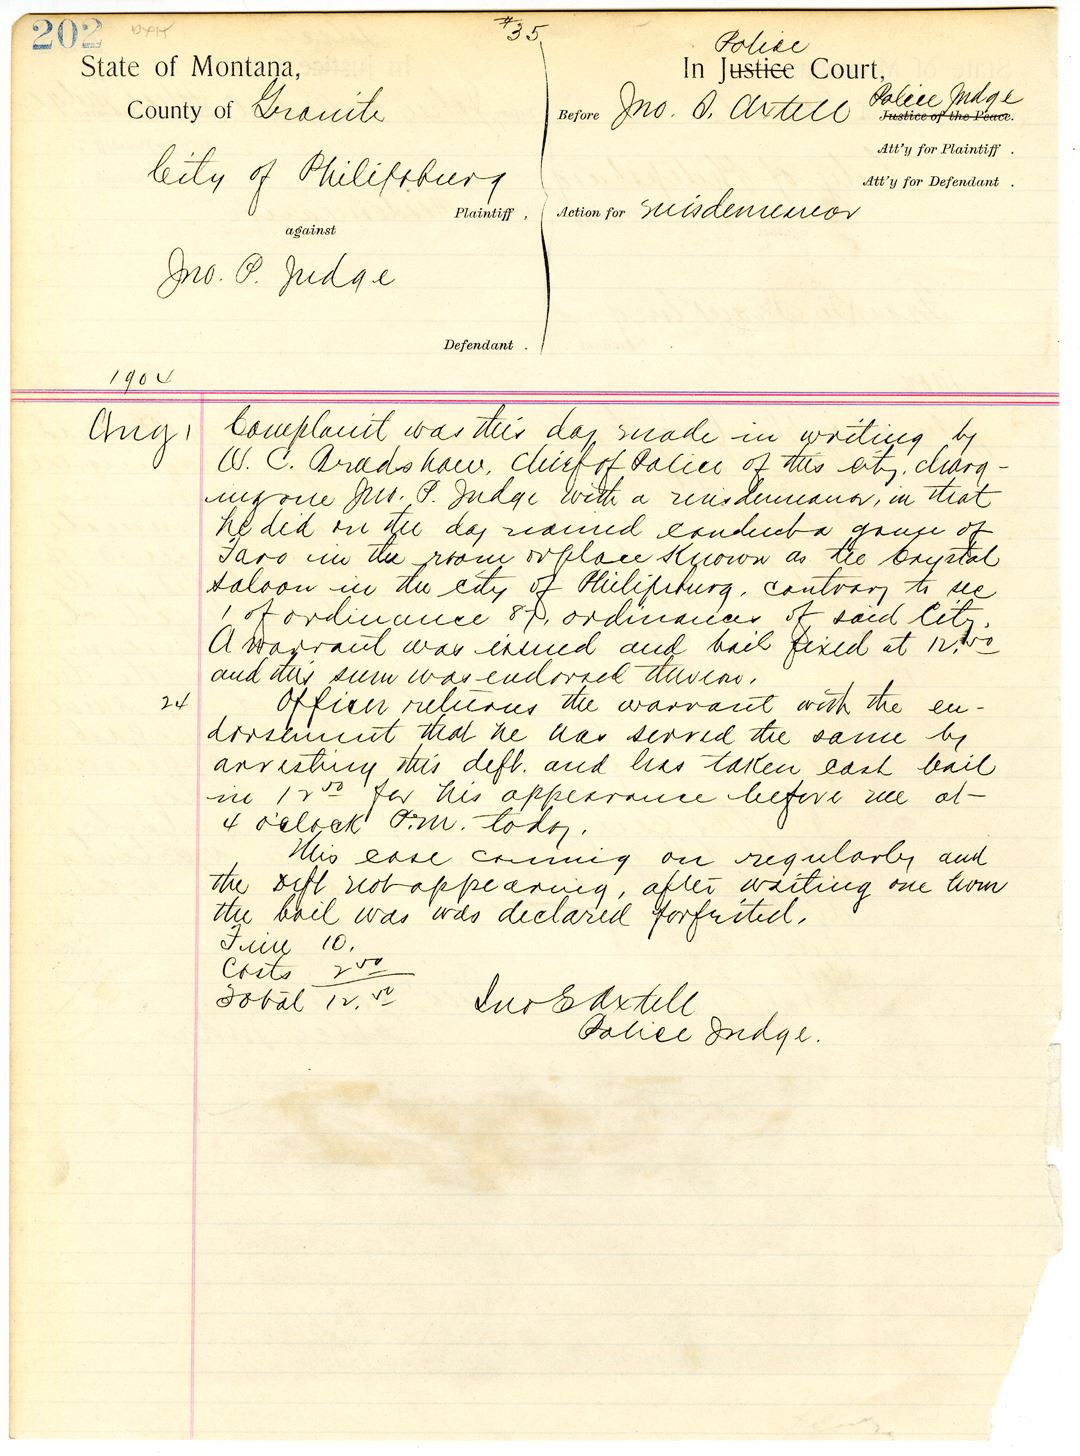 202
#35
State of Montana,
County of Granite
City of Philipsburg
Plaintiff,
against
Jno. P. Judge
Defendant.
Police
In Justice Court,
Before Jno. S. Axtell Police Judge
Justice of the Peace.
Att'y for Plaintiff.
Att'y for Defendant.
Action for misdemeanor
1904
Aug 1 Complaint was this day made in writing by
W. C. Bradshaw, Chief of Police of this city, charg-
ing one Jno. P. Judge with a misdemeanor, in that
he did on the day named conduct a game of
Faro in the room or place known as the Crystal
saloon in the city of Philipsburg, contrary to sec
1 of ordinance 87, ordinances of said City.
A warrant was issued and bail fixed at 12.50
and this sum was endorsed thereon.
24 Officer returns the warrant with the en-
dorsement that he has served the same by
arresting this deft. and has taken cash bail
in 12 50 for his appearance before me at
4 o'clock P.M. today.
This case coming on regularly and
the Deft not appearing, after waiting one hour
the bail was was declared forfeited.
Fine 10.
Costs 2 50
Total 12.50
Jno E Axtell
Police Judge.